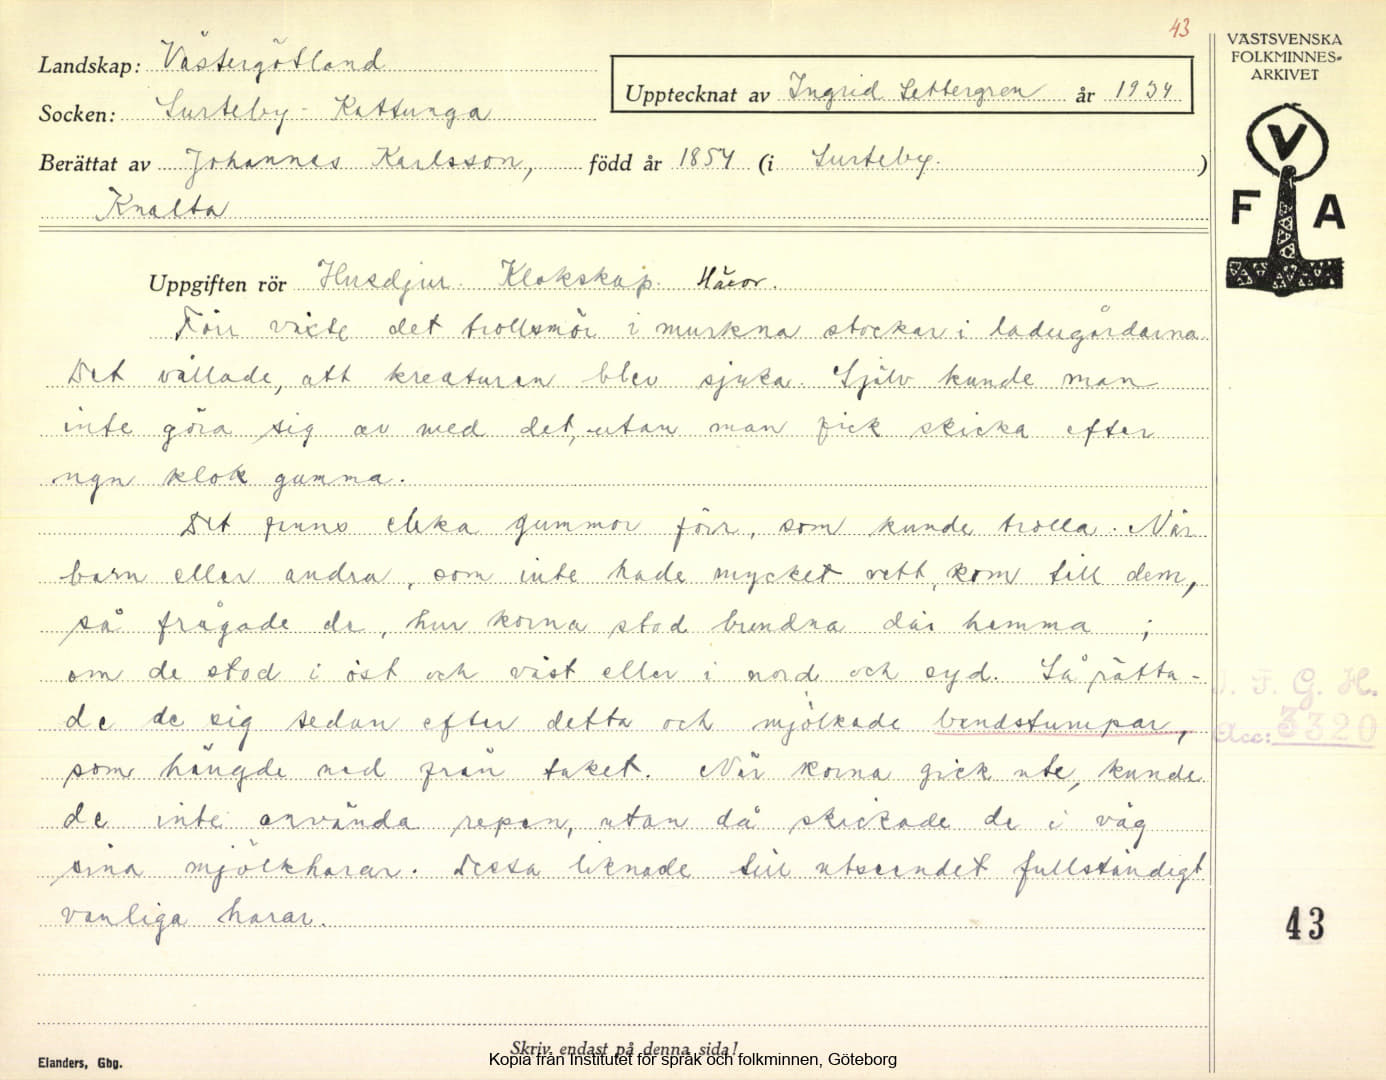 43
Landskap: Västergötland
Socken: Surteby-Kattunga
Upptecknat av Ingrid Settergren år 1934
Berättat av Johannes Karlsson, född år 1854 (i Surteby.)
Knalta
Uppgiften rör Husdjur. Klokskap. Häxor.
Förr växte det trollsmör i murkna stockar i ladugårdarna.
Det vållade, att kreaturen blev sjuka. Själv kunde man
inte göra sig av med det, utan man fick skicka efter
ngn klok gumma.
Det funns elaka gummor förr, som kunde trolla. När
barn eller andra, som inte hade mycket vett, kom till dem,
så frågade de, hur korna stod bundna där hemma ;
om de stod i öst och väst eller i nord och syd. Så rätta-
de de sig sedan efter detta och mjölkade bandstumpar,
som hängde ned från taket. När korna gick ute, kunde
de inte använda repen, utan då skickade de i väg
sina mjölkharar. Dessa liknade till utseendet fullständigt
vanliga harar.
Skriv endast på denna sida!
Elanders, Gbg.
Kopia från Institutet för språk och folkminnen, Göteborg
VÄSTSVENSKA
FOLKMINNES-
ARKIVET
V
F A
I. F. G. H.
Acc: 3320
43